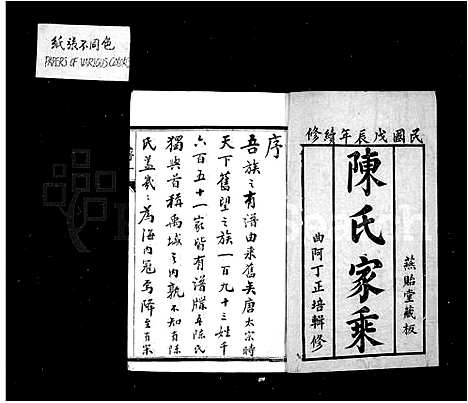 紙張不同色
PAPERS OF VARIOUS COLORS
民國戊辰年續修
燕貽堂藏板
陳氏家乘
曲阿丁正培輯修
序
吾族之有譜由來舊矣唐太宗時
天下舊望之族一百九十三姓千
六百五十一家皆有譜牒吾陳氏
獨與首稱禹域之內孰不知有陳
氏蓋巍巍為海內冠焉降至有宋